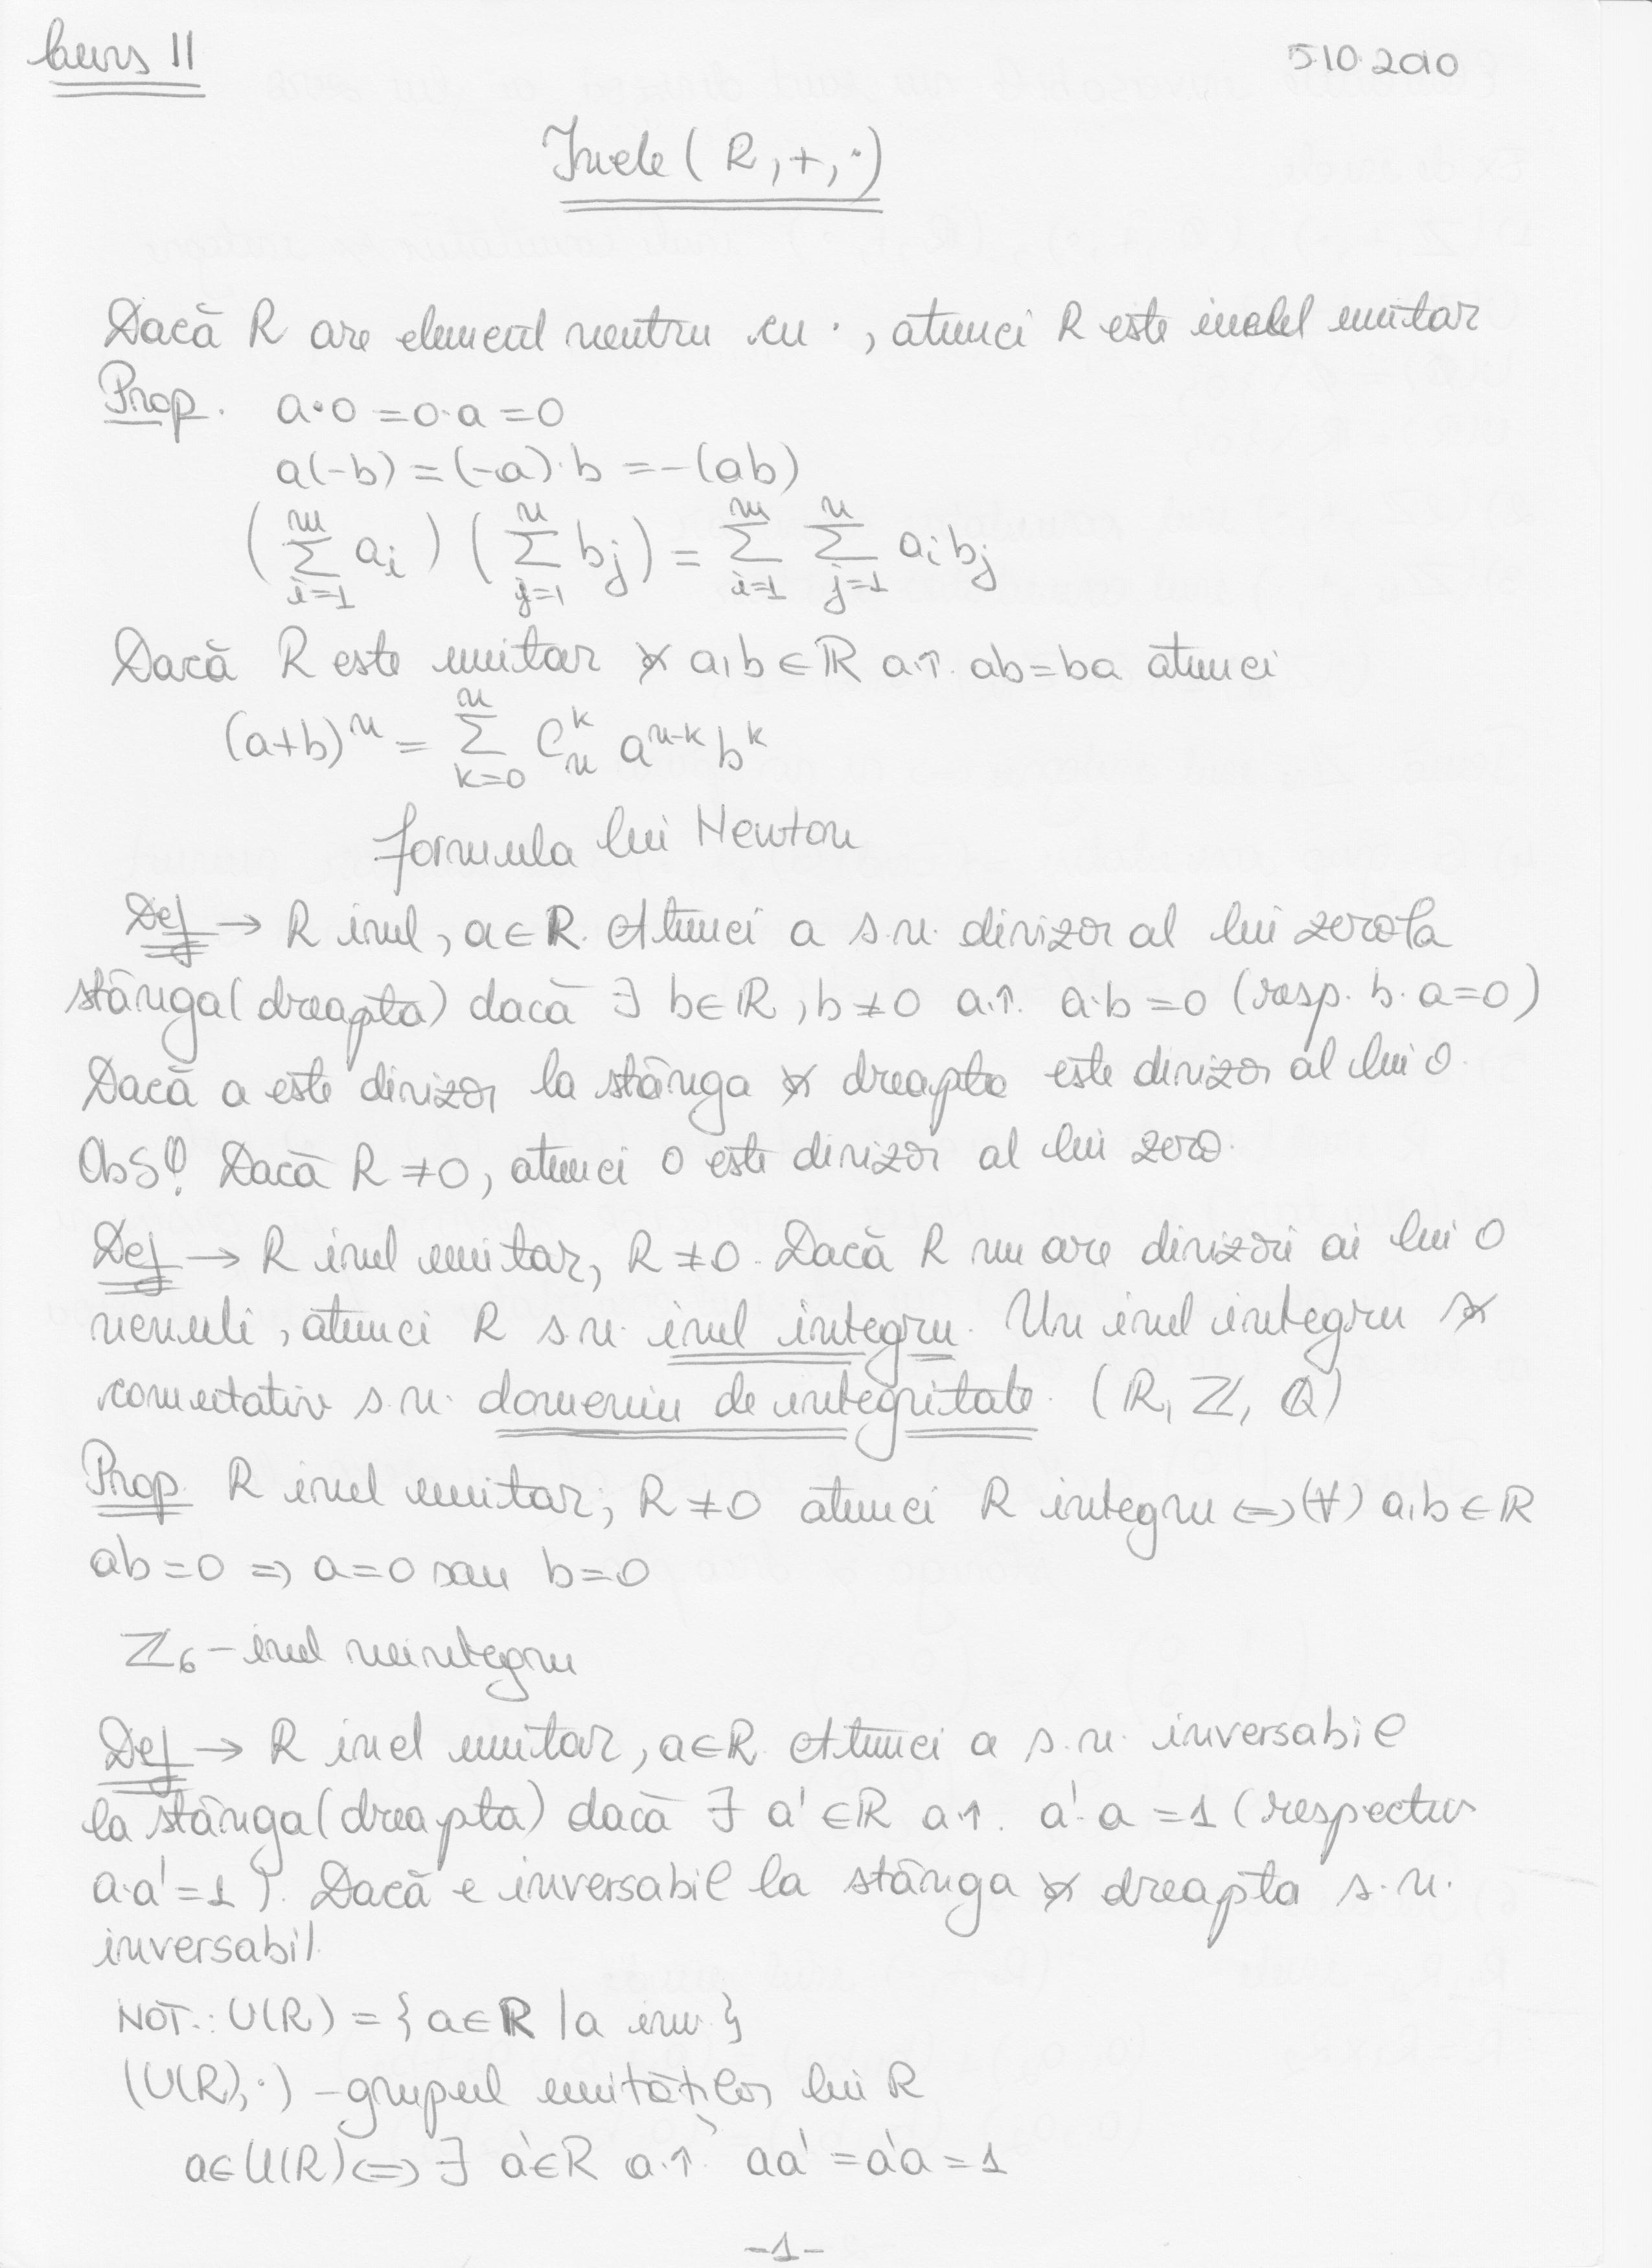 Curs II 5.10.2010
Inele (R, +, ·)
Dacă R are element neutru cu ·, atunci R este inelel unitar
Prop. a·0 = 0·a = 0
a(-b) = (-a)·b = -(ab)
(∑_{i=1}^{m} a_i) (∑_{j=1}^{n} b_j) = ∑_{i=1}^{m} ∑_{j=1}^{n} a_i b_j
Dacă R este unitar și a,b ∈ R a.î. ab=ba atunci
(a+b)^n = ∑_{k=0}^{n} C_n^k a^{n-k} b^k
formula lui Newton
Def → R inel, a∈R. Atunci a s.n. divizor al lui zero la
stânga (dreapta) dacă ∃ b∈R, b≠0 a.î. a·b=0 (resp. b·a=0)
Dacă a este divizor la stânga și dreapta este divizor al lui 0.
Obs! Dacă R≠0, atunci 0 este divizor al lui zero.
Def → R inel unitar, R≠0. Dacă R nu are divizori ai lui 0
nenuli, atunci R s.n. inel integru. Un inel integru și
comutativ s.n. domeniu de integritate. (R, Z, Q)
Prop. R inel unitar, R≠0 atunci R integru ⇔ (∀) a,b∈R
ab=0 ⇒ a=0 sau b=0
Z_6 - inel neintegru
Def → R inel unitar, a∈R. Atunci a s.n. inversabil
la stânga (dreapta) dacă ∃ a'∈R a.î. a'·a=1 (respectiv
a·a'=1). Dacă e inversabil la stânga și dreapta s.n.
inversabil.
NOT.: U(R) = {a∈R | a inv.}
(U(R), ·) - grupul unităților lui R
a∈U(R) ⇔ ∃ a'∈R a.î. aa' = a'a = 1
-1-